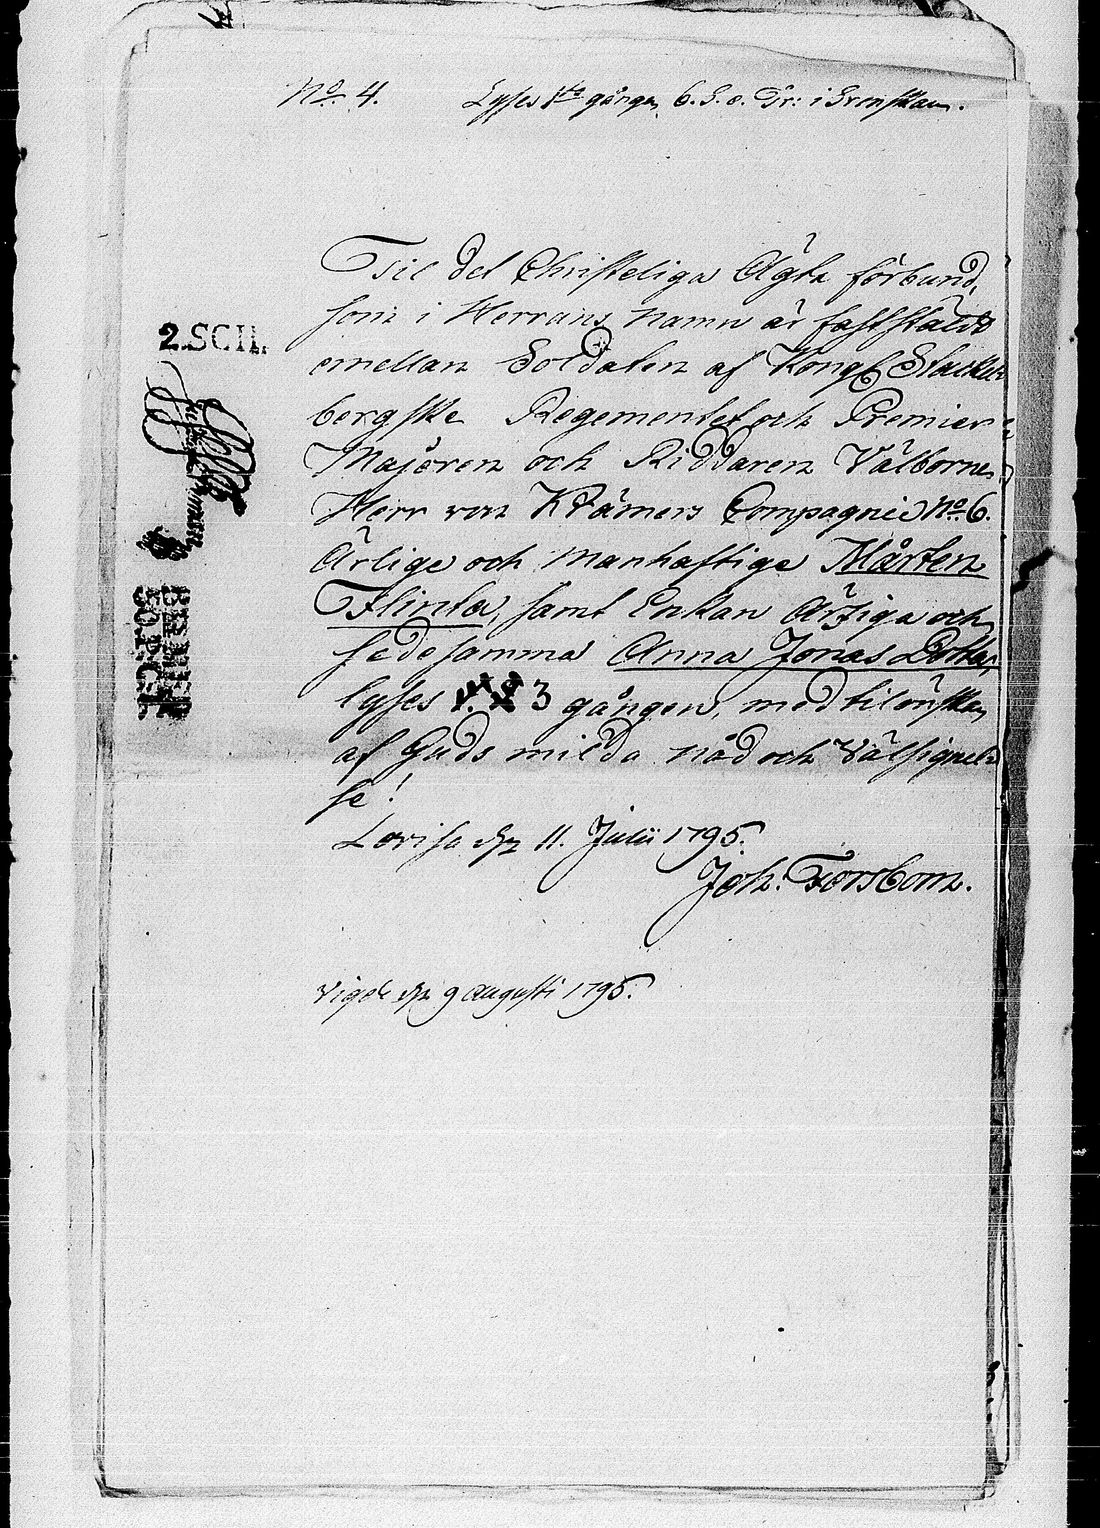 No. 4. Lyses 1sta gången, 6. S. e. Tr: i Svenskan.
Til det Christeliga Ägta förbund,
som i Herrans namn är fastställdt
emellan Soldaten af Kongl. Stackel-
bergske Regementet och Premier
Majoren och Riddaren Välborne
Herr von Kræmers Compagnie No. 6.
Ärlige och Manhaftige Mårten
Flinta, samt Enkan Ärliga och
sedesamma Anna Jonas Dotter,
lyses 3 gången, med tilönskan
af Guds milda nåd och Välsignel-
se!
Lovisa den 11. Julii 1795.
Joh: Forsbom.
Vigde den 9 Augusti 1795.
2.SCIL.